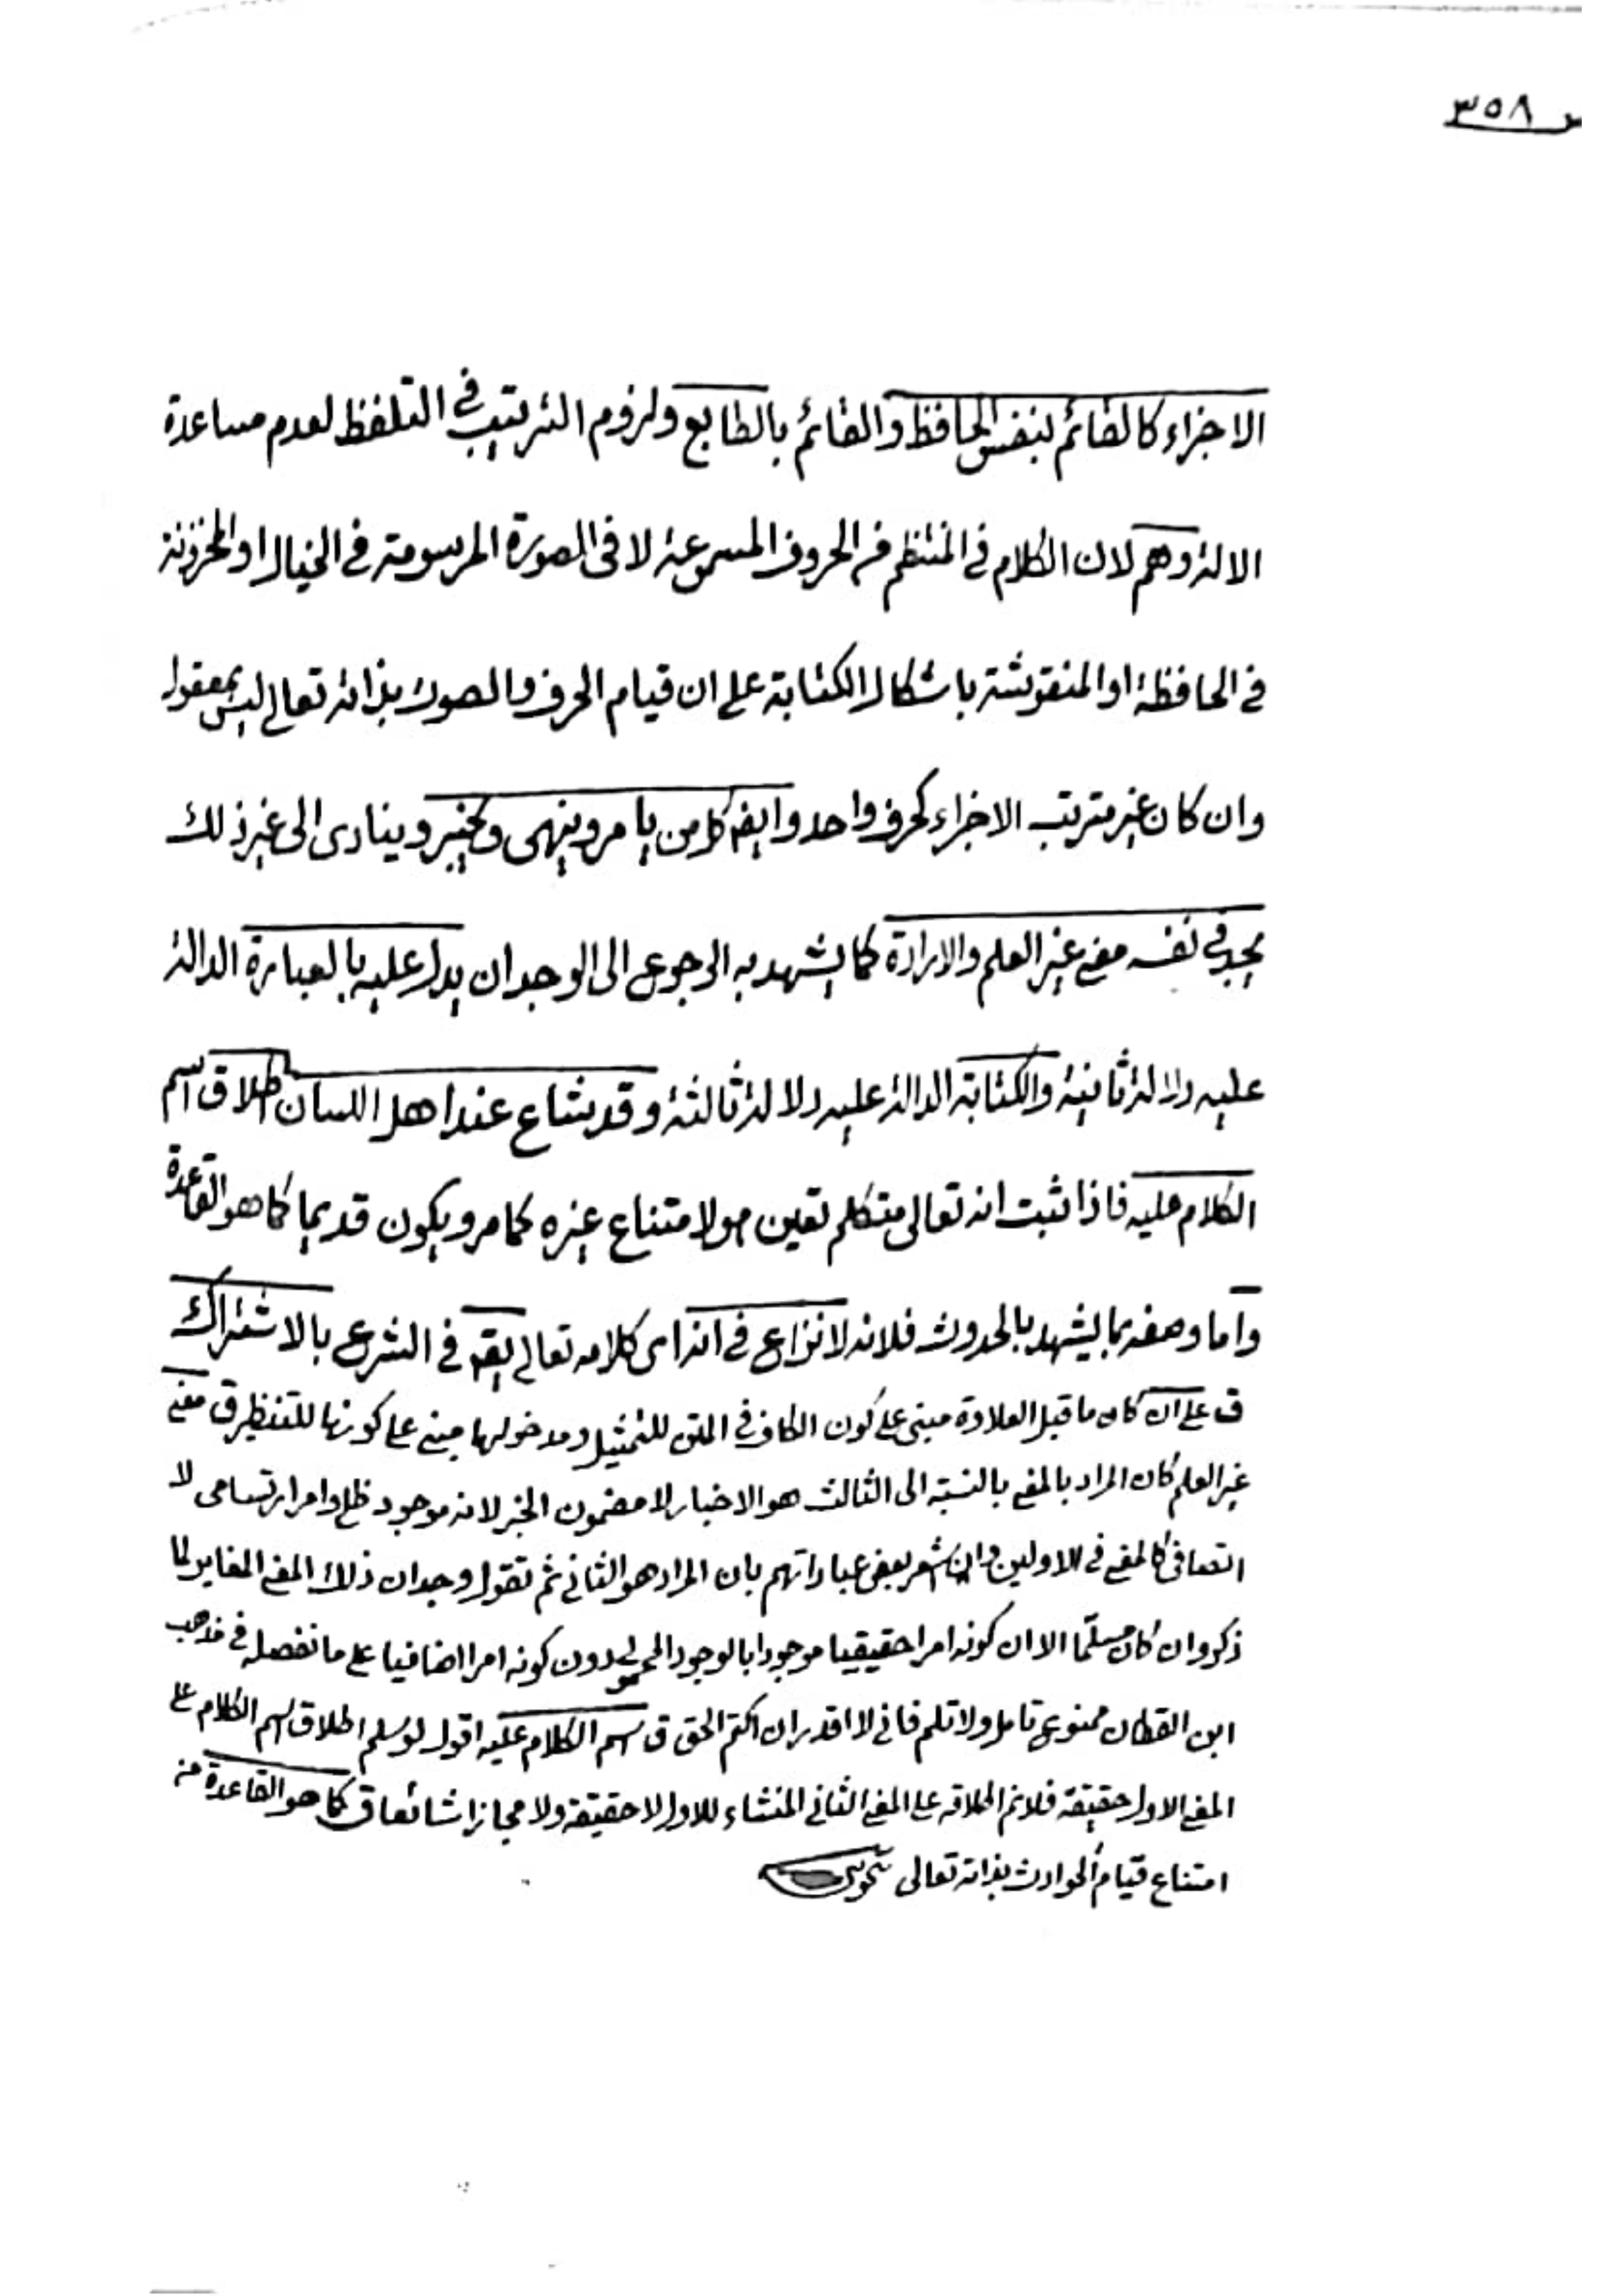 ص ٣٥٨
الاجزاء كالقائم بنفس الحافظ والقائم بالطابع ولزوم الترتيب فى التلفظ لعدم مساعدة
الالة وهم لان الكلام فى المنتظم من الحروف المسموعة لا فى الصورة المرسومة فى الخيال او المخزونة
فى الحافظة او المنقوشة باشكال الكتابة على ان قيام الحرف والصوت بذاته تعالى ليس بمعقول
وان كان غير مترتب الاجزاء كحرف واحد وايضه كل من يامر وينهى ويخبر وينادى الى غير ذلك
يجد فى نفسه معنى غير العلم والارادة كما يشهد به الرجوع الى الوجدان يدل عليه بالعبارة الدالة
عليه دلالة ثانية والكتابة الدالة عليه دلالة ثالثة وقد شاع عند اهل اللسان اطلاق اسم
الكلام عليه فاذا ثبت انه تعالى متكلم تعين هو لامتناع غيره كما مر ويكون قديما كما هو القاعدة
واما وصفه بما يشهد بالحدوث فلانه لا نزاع فى انه اى كلامه تعالى يقه فى الشرع بالاشتراك
ق على ان كان ما قبل العلاوة مبنى على كون الكاف فى المتن للتمثيل ومدخولها مبنى على كونها للتنظير ق معنى
غير العلم كان المراد بالمعنى بالنسبة الى الثالث هو الاخبار لا مضمون الخبر لانه موجود ظلى وامر ارتسامى لا
اتصافى كالمعنى فى الاولين وان اشعر بعض عباراتهم بان المراد هو الثانى ثم نقول وجدان ذلك المعنى المغاير لما
ذكر وان كان مسلّما الا ان كونه امرا حقيقيا موجودا بالوجود المحمولى دون كونه امرا اضافيا على ما نفصله فى مذهب
ابن القطان ممنوع تامل ولا تلم فانى لا اقدر ان اكتم الحق ق اسم الكلام عليه اقول لو سلم اطلاق اسم الكلام على
المعنى الاول حقيقة فلا نم اطلاقه على المعنى الثانى المنشاء للاول لا حقيقة ولا مجازا شائعا ق كما هو القاعدة من
امتناع قيام الحوادث بذاته تعالى